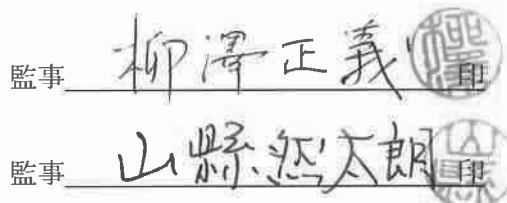 監事 柳澤正義 印
監事 山縣然太朗 印